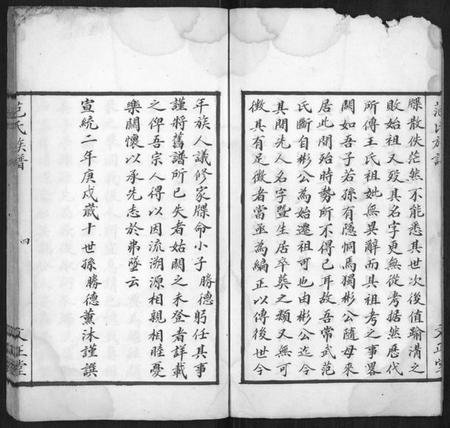 范氏族譜
文正堂
牒散佚茫然不能悉其世次後值鞠清之
敗始祖又歿其名字更無從考據然歷代
所傳王氏祖妣無異辭而其祖考之事畧
闕如吾子若孫有隱恫焉獨彬公隨母來
居此間殆時勢所不得已耳故吾常武范
氏斷自彬公為始遷祖可也由彬公迄今
其間先人名字暨生居卒葬之類又無可
徵其有足徵者當亟為編正以傳後世今
年族人議修家牒命小子勝德躬任其事
謹將舊譜所已失者姑闕之未登者詳載
之俾吾宗人得以因流溯源相親相睦憂
樂關懷以承先志於弗墜云
宣統二年庚戌歲十世孫勝德薰沐謹譔
范氏族譜
四
文正堂